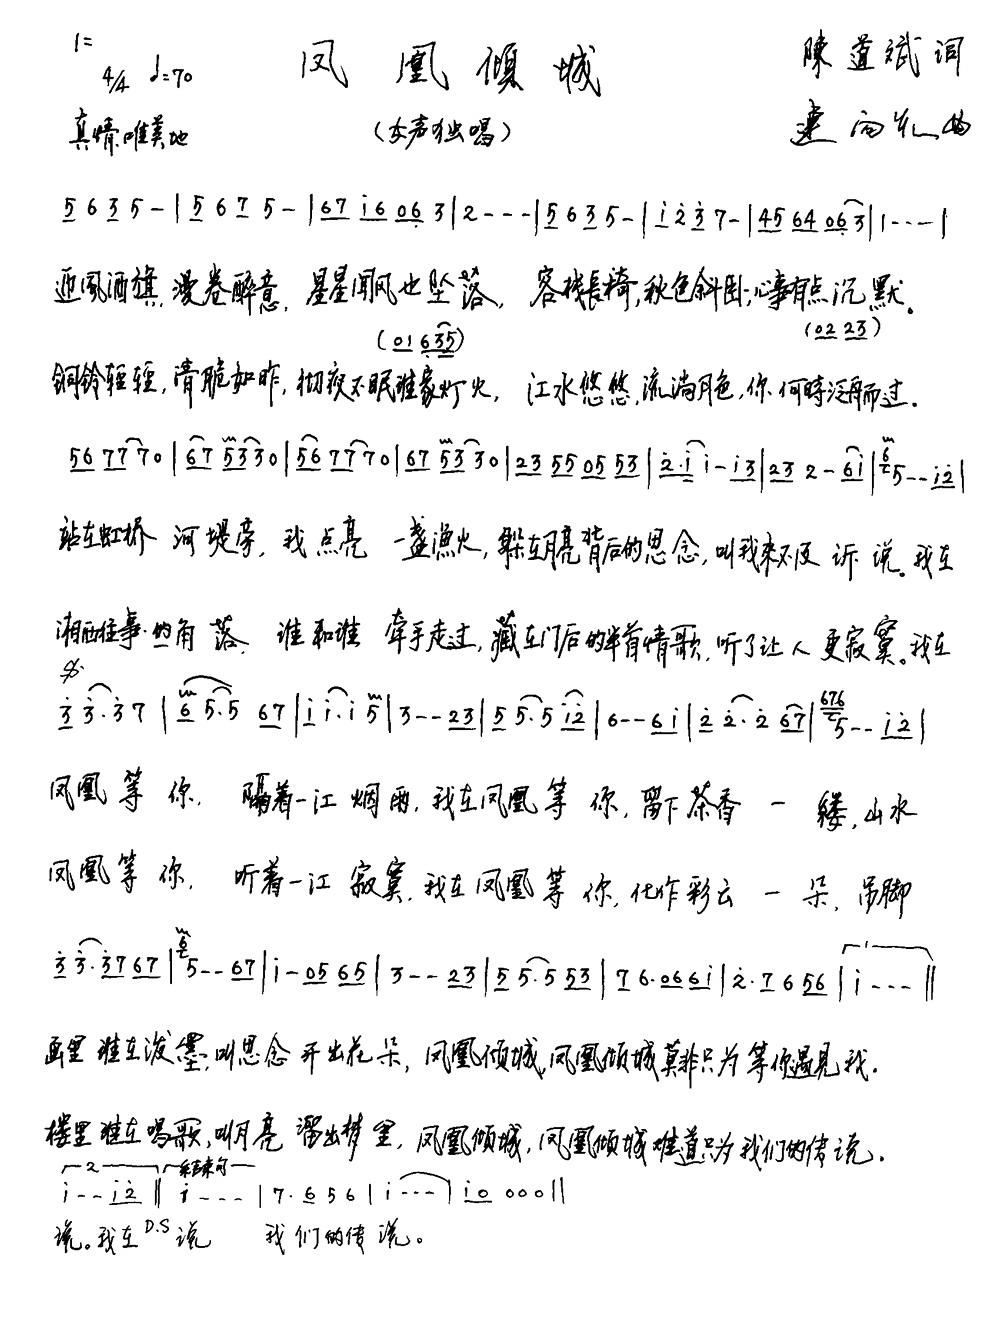 1=
4/4 ♩=70 凤凰倾城 陳道斌 词
真情、唯美地 (女声独唱) 曲
5 6 3 5 - | 5 6 7 5 - | 67 i6 06 3 | 2 - - - | 5 6 3 5 - | i 2 3 7 - | 45 64 06 3 | 1 - - - |
迎风酒旗，漫卷醉意，星星闻风也坠落，客栈長椅，秋色斜卧，心事有点沉默。
(01 635) (02 23)
铜铃轻轻，清脆如昨，彻夜不眠谁家灯火，江水悠悠，流淌月色，你何時泛舟而过.
56 77 70 | 67 533 0 | 56 77 70 | 67 533 0 | 23 55 05 53 | 2·i i - i3 | 23 2 - 6i | 6 5 - - i2 |
站在虹桥 河堤旁，我点亮 一盏漁火，躲在月亮背后的思念，叫我来不及诉说。我在
湘西往事的角落，谁和谁 牵手走过，藏在门后的半首情歌，听了让人更寂寞。我在
3 3·3 7 | 6 5·5 67 | i i·i 5 | 3 - - 23 | 5 5·5 i2 | 6 - - 6i | 2 2·2 67 | 676 5 - - i2 |
凤凰等你， 隔着一江烟雨，我在凤凰等你，留下茶香一缕，山水
凤凰等你， 听着一江寂寞，我在凤凰等你，化作彩云一朵，吊脚
3 3·37 67 | 6 5 - - 67 | i - 05 65 | 3 - - 23 | 5 5·5 53 | 7 6·06 6i | 2·7 6 56 | 1 i - - - ‖
画里谁在泼墨，叫思念开出花朵，凤凰倾城，凤凰倾城莫非只为等你遇见我.
楼里谁在唱歌，叫月亮溜出梦里，凤凰倾城，凤凰倾城难道只为我们的传说.
2 结束句
i - - i2 ‖ i - - - | 7·6 5 6 | i - - - | i0 000 ‖
说。我在 D.S 说 我们的传说。